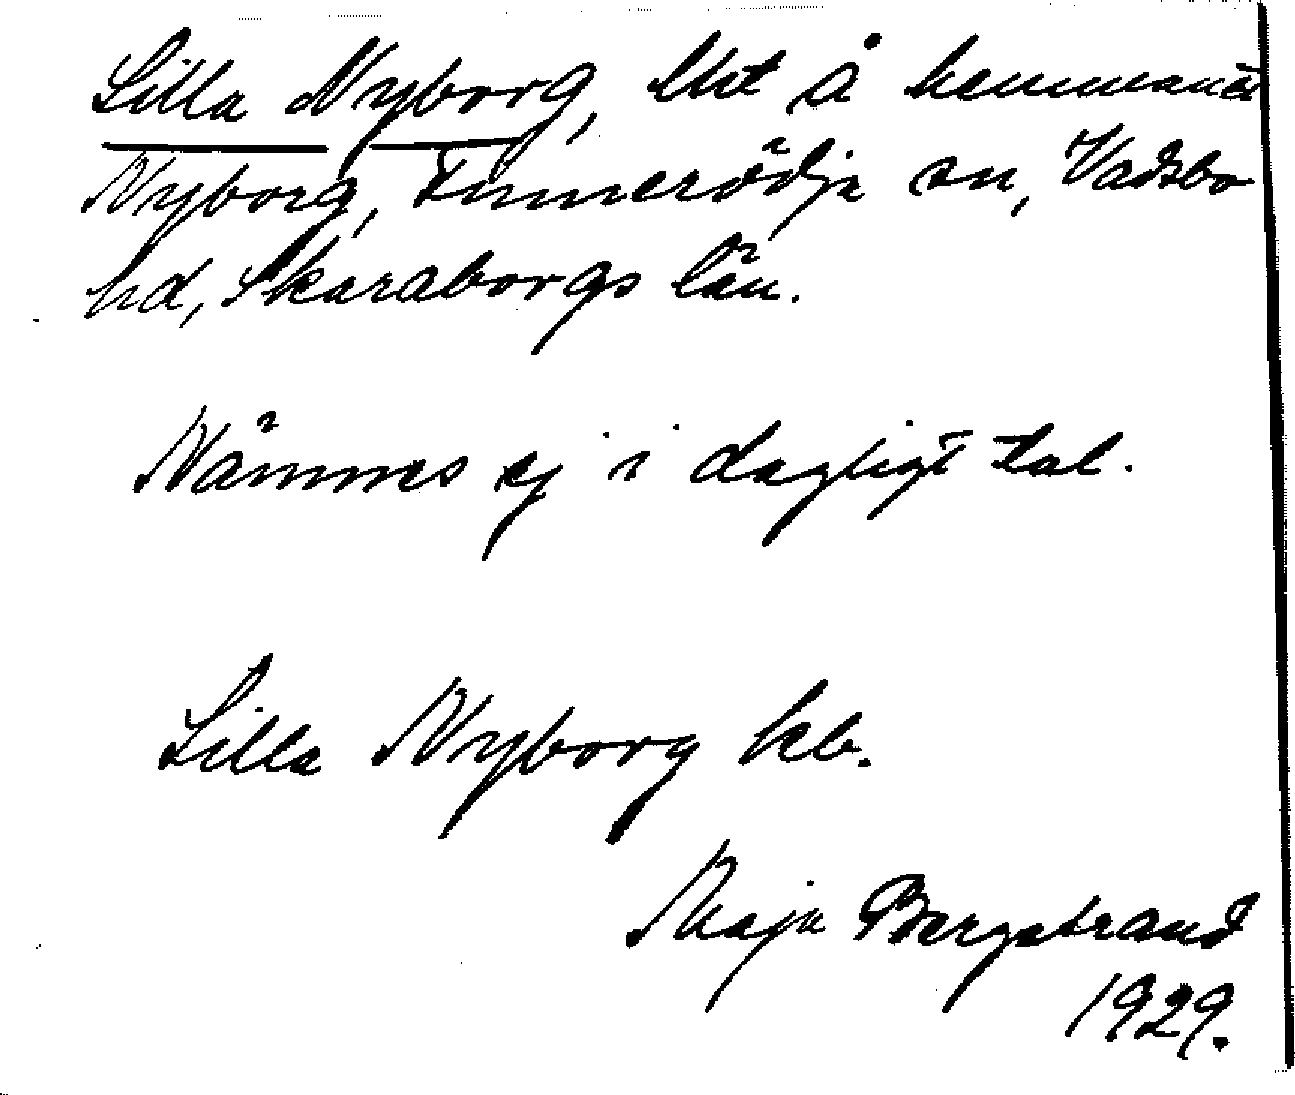 Lilla Nyborg, lht å hemmanet
Nyborg, Finnerödja sn, Vadsbo
hd, Skaraborgs län.
Nämnes ej i dagligt tal.
Lilla Nyborg kb.
Maja Bergstrand
1929.